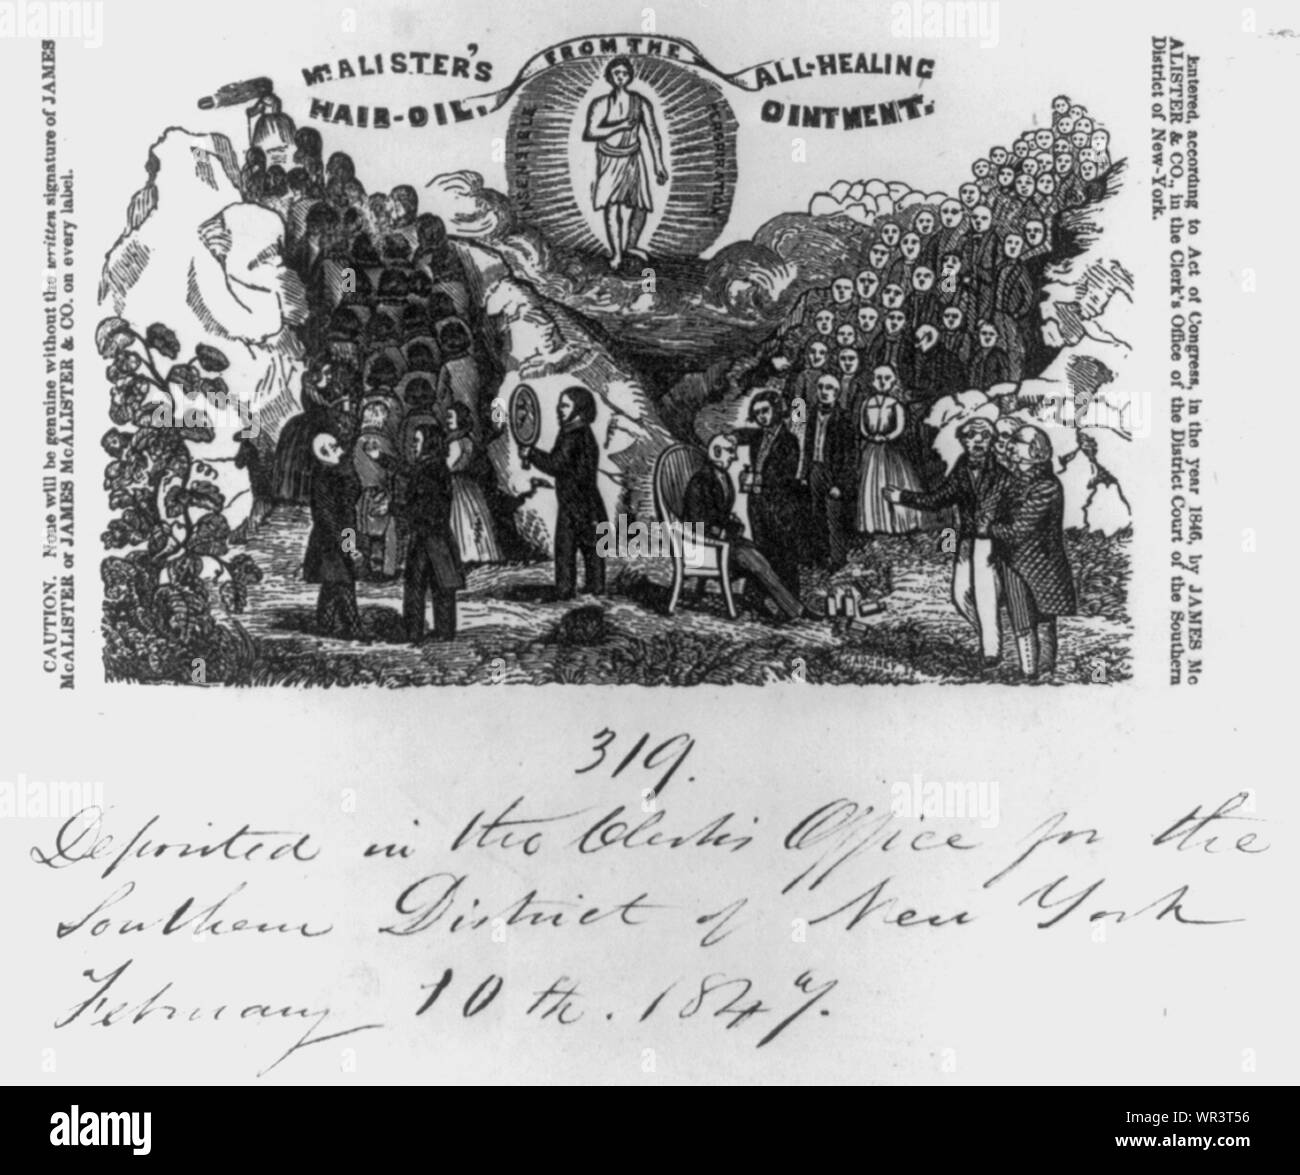 CAUTION. None will be genuine without the written signature of JAMES
McALISTER or JAMES McALISTER & CO. on every label.
McALISTER'S FROM THE ALL-HEALING
HAIR-OIL. OINTMENT.
INSENSIBLE PERSPIRATION
Entered, according to Act of Congress, in the year 1846, by JAMES Mc
ALISTER & CO., in the Clerk's Office of the District Court of the Southern
District of New-York.
319.
Deposited in the Clerk's Office for the
Southern District of New York
February 10th. 1847.
alamy
a
alamy
Image ID: WR3T56
www.alamy.com